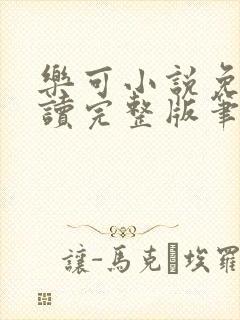 樂可小說免
讀完整版筆
讓-馬克·埃羅